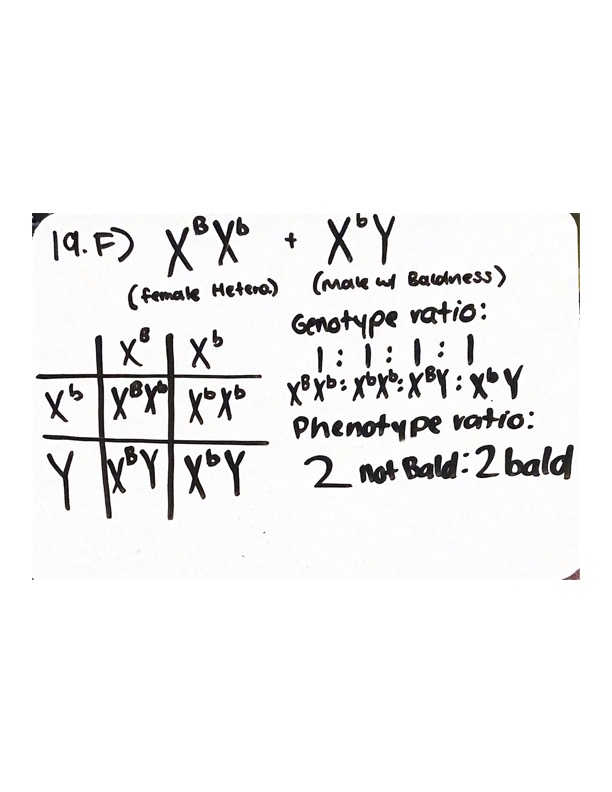 19. F) XᴮXᵇ + XᵇY
(female Hetero.) (Male w/ Baldness)
Xᴮ Xᵇ
Xᵇ XᴮXᵇ XᵇXᵇ
Y XᴮY XᵇY
Genotype ratio:
1 : 1 : 1 : 1
XᴮXᵇ : XᵇXᵇ : XᴮY : XᵇY
Phenotype ratio:
2 not Bald : 2 bald